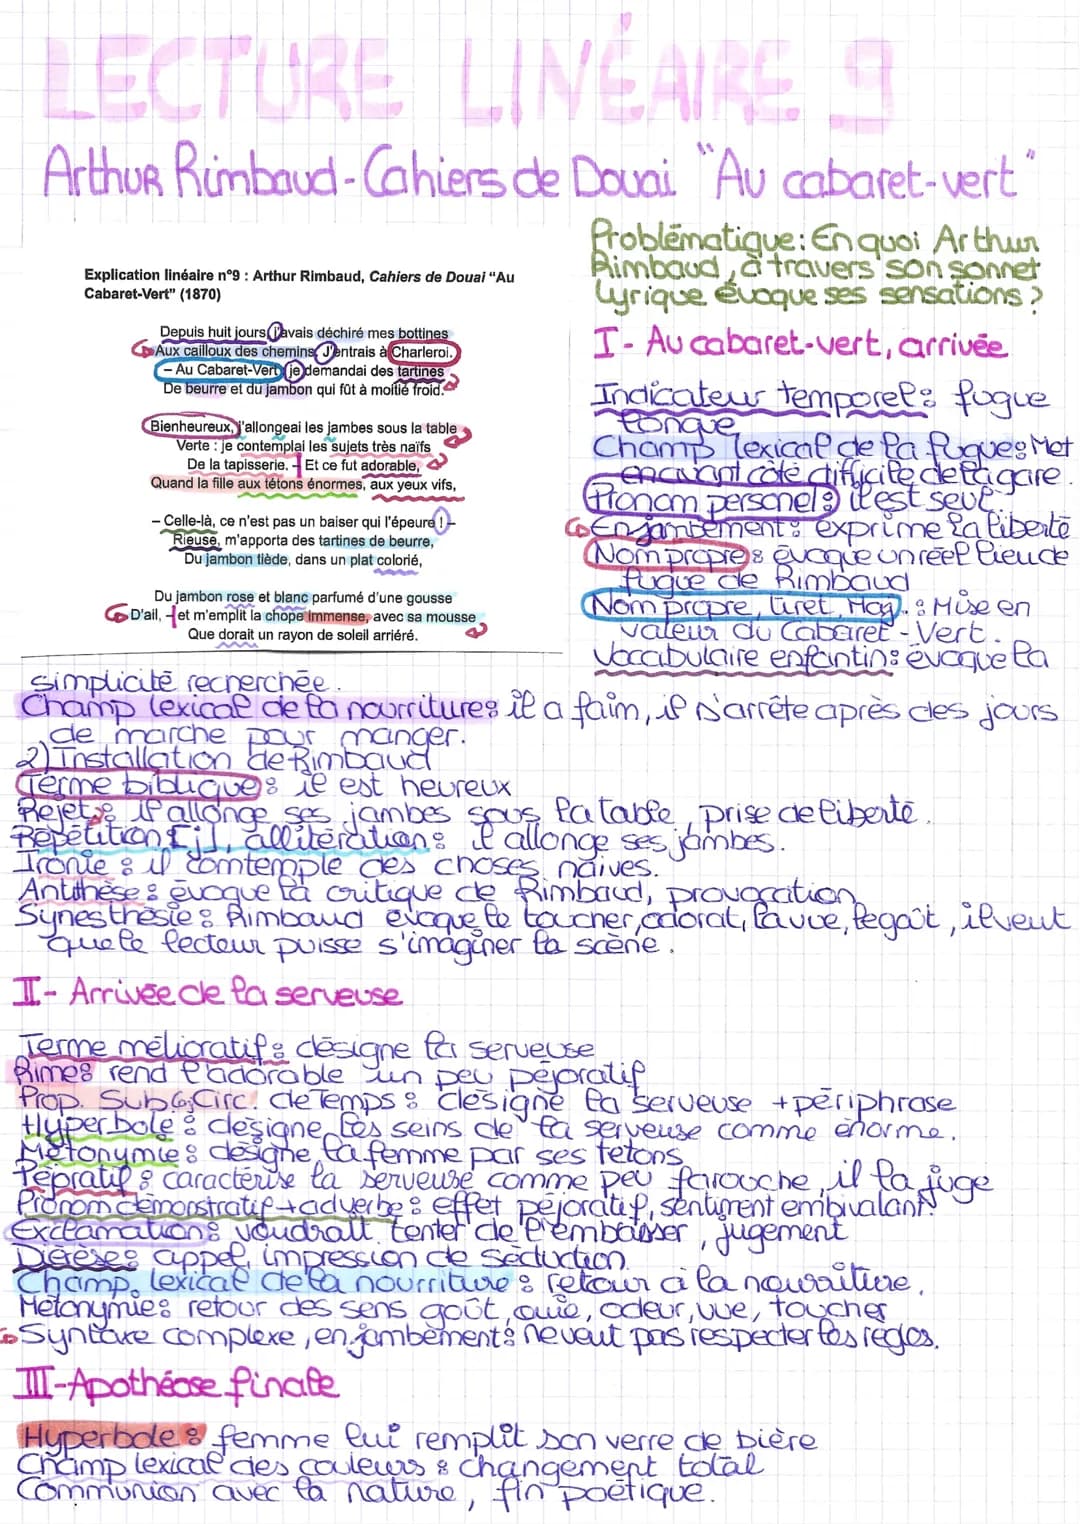 LECTURE LINÉAIRE 9
Arthur Rimbaud - Cahiers de Douai "Au cabaret-vert"
Problématique : En quoi Arthur
Rimbaud, à travers son sonnet
lyrique évoque ses sensations ?
Explication linéaire n°9 : Arthur Rimbaud, Cahiers de Douai "Au
Cabaret-Vert" (1870)
Depuis huit jours, j'avais déchiré mes bottines
Aux cailloux des chemins. J'entrais à Charleroi.
– Au Cabaret-Vert : je demandai des tartines
De beurre et du jambon qui fût à moitié froid.
Bienheureux, j'allongeai les jambes sous la table
Verte : je contemplai les sujets très naïfs
De la tapisserie. – Et ce fut adorable,
Quand la fille aux tétons énormes, aux yeux vifs,
– Celle-là, ce n'est pas un baiser qui l'épeure ! –
Rieuse, m'apporta des tartines de beurre,
Du jambon tiède, dans un plat colorié,
Du jambon rose et blanc parfumé d'une gousse
D'ail, – et m'emplit la chope immense, avec sa mousse
Que dorait un rayon de soleil arriéré.
I - Au cabaret-vert, arrivée
Indicateur temporel : fugue
longue
Champ lexical de la fugue : Met
en avant côté difficile de la gare.
Pronom personel : il est seul.
Enjambement : exprime la liberté
Nom propre : évoque un réel lieu de
fugue de Rimbaud
Nom propre, tiret, Maj. : Mise en
valeur du Cabaret-Vert.
Vocabulaire enfantin : évoque la
simplicité recherchée.
Champ lexical de la nourriture : il a faim, il s'arrête après des jours
de marche pour manger.
2) Installation de Rimbaud
Terme biblique : il est heureux
Rejet : il allonge ses jambes sous la table, prise de liberté.
Répétition [j], allitération : il allonge ses jambes.
Ironie : il comtemple des choses naïves.
Antithèse : évoque la critique de Rimbaud, provocation
Synesthésie : Rimbaud évoque le toucher, odorat, la vue, le goût, il veut
que le lecteur puisse s'imaginer la scène.
II - Arrivée de la serveuse
Terme mélioratif : désigne la serveuse
Rimes rend l'adorable un peu péjoratif
Prop. Sub. Circ. de Temps : désigne la serveuse + périphrase
Hyperbole : désigne les seins de la serveuse comme énorme.
Métonymie : désigne la femme par ses tétons
Péjratif : caractérise la serveuse comme peu farouche, il la juge
Pronom démonstratif + adverbe : effet péjoratif, sentiment embivalant.
Exclamation : voudrait tenter de l'embasser, jugement
Diérèse : appel, impression de séduction.
Champ lexical de la nourriture : retour à la nourriture.
Métonymie : retour des sens goût, ouïe, odeur, vue, toucher
Syntaxe complexe, enjambement : ne veut pas respecter les règles.
III - Apothéose finale
Hyperbole : femme lui remplit son verre de bière
Champ lexical des couleurs : changement total
Communion avec la nature, fin poétique.